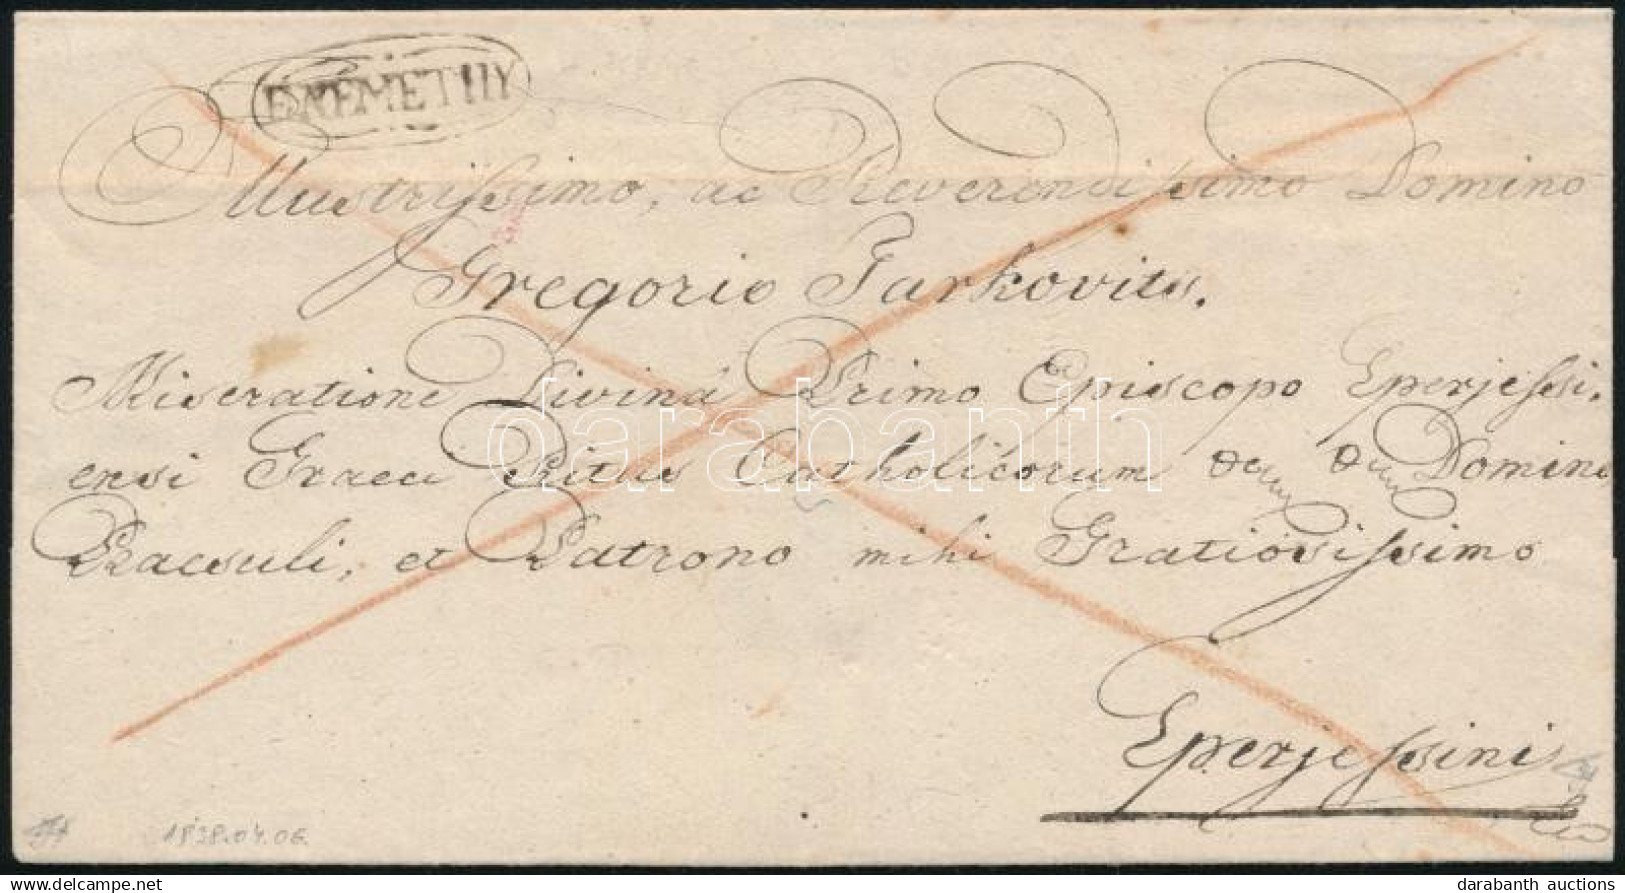 F.NEMETHY
Illustrissimo, ac Reverendissimo Domino
Gregorio Tarkovits.
Miseratione Divinâ Primo Episcopo Eperjessi-
ensi Graeci Ritus Catholicorum Domino
Praesuli, et Patrono mihi Gratiosissimo
Eperjessini
1838.04.06.
darabanth
www.delcampe.net
darabanth auctions